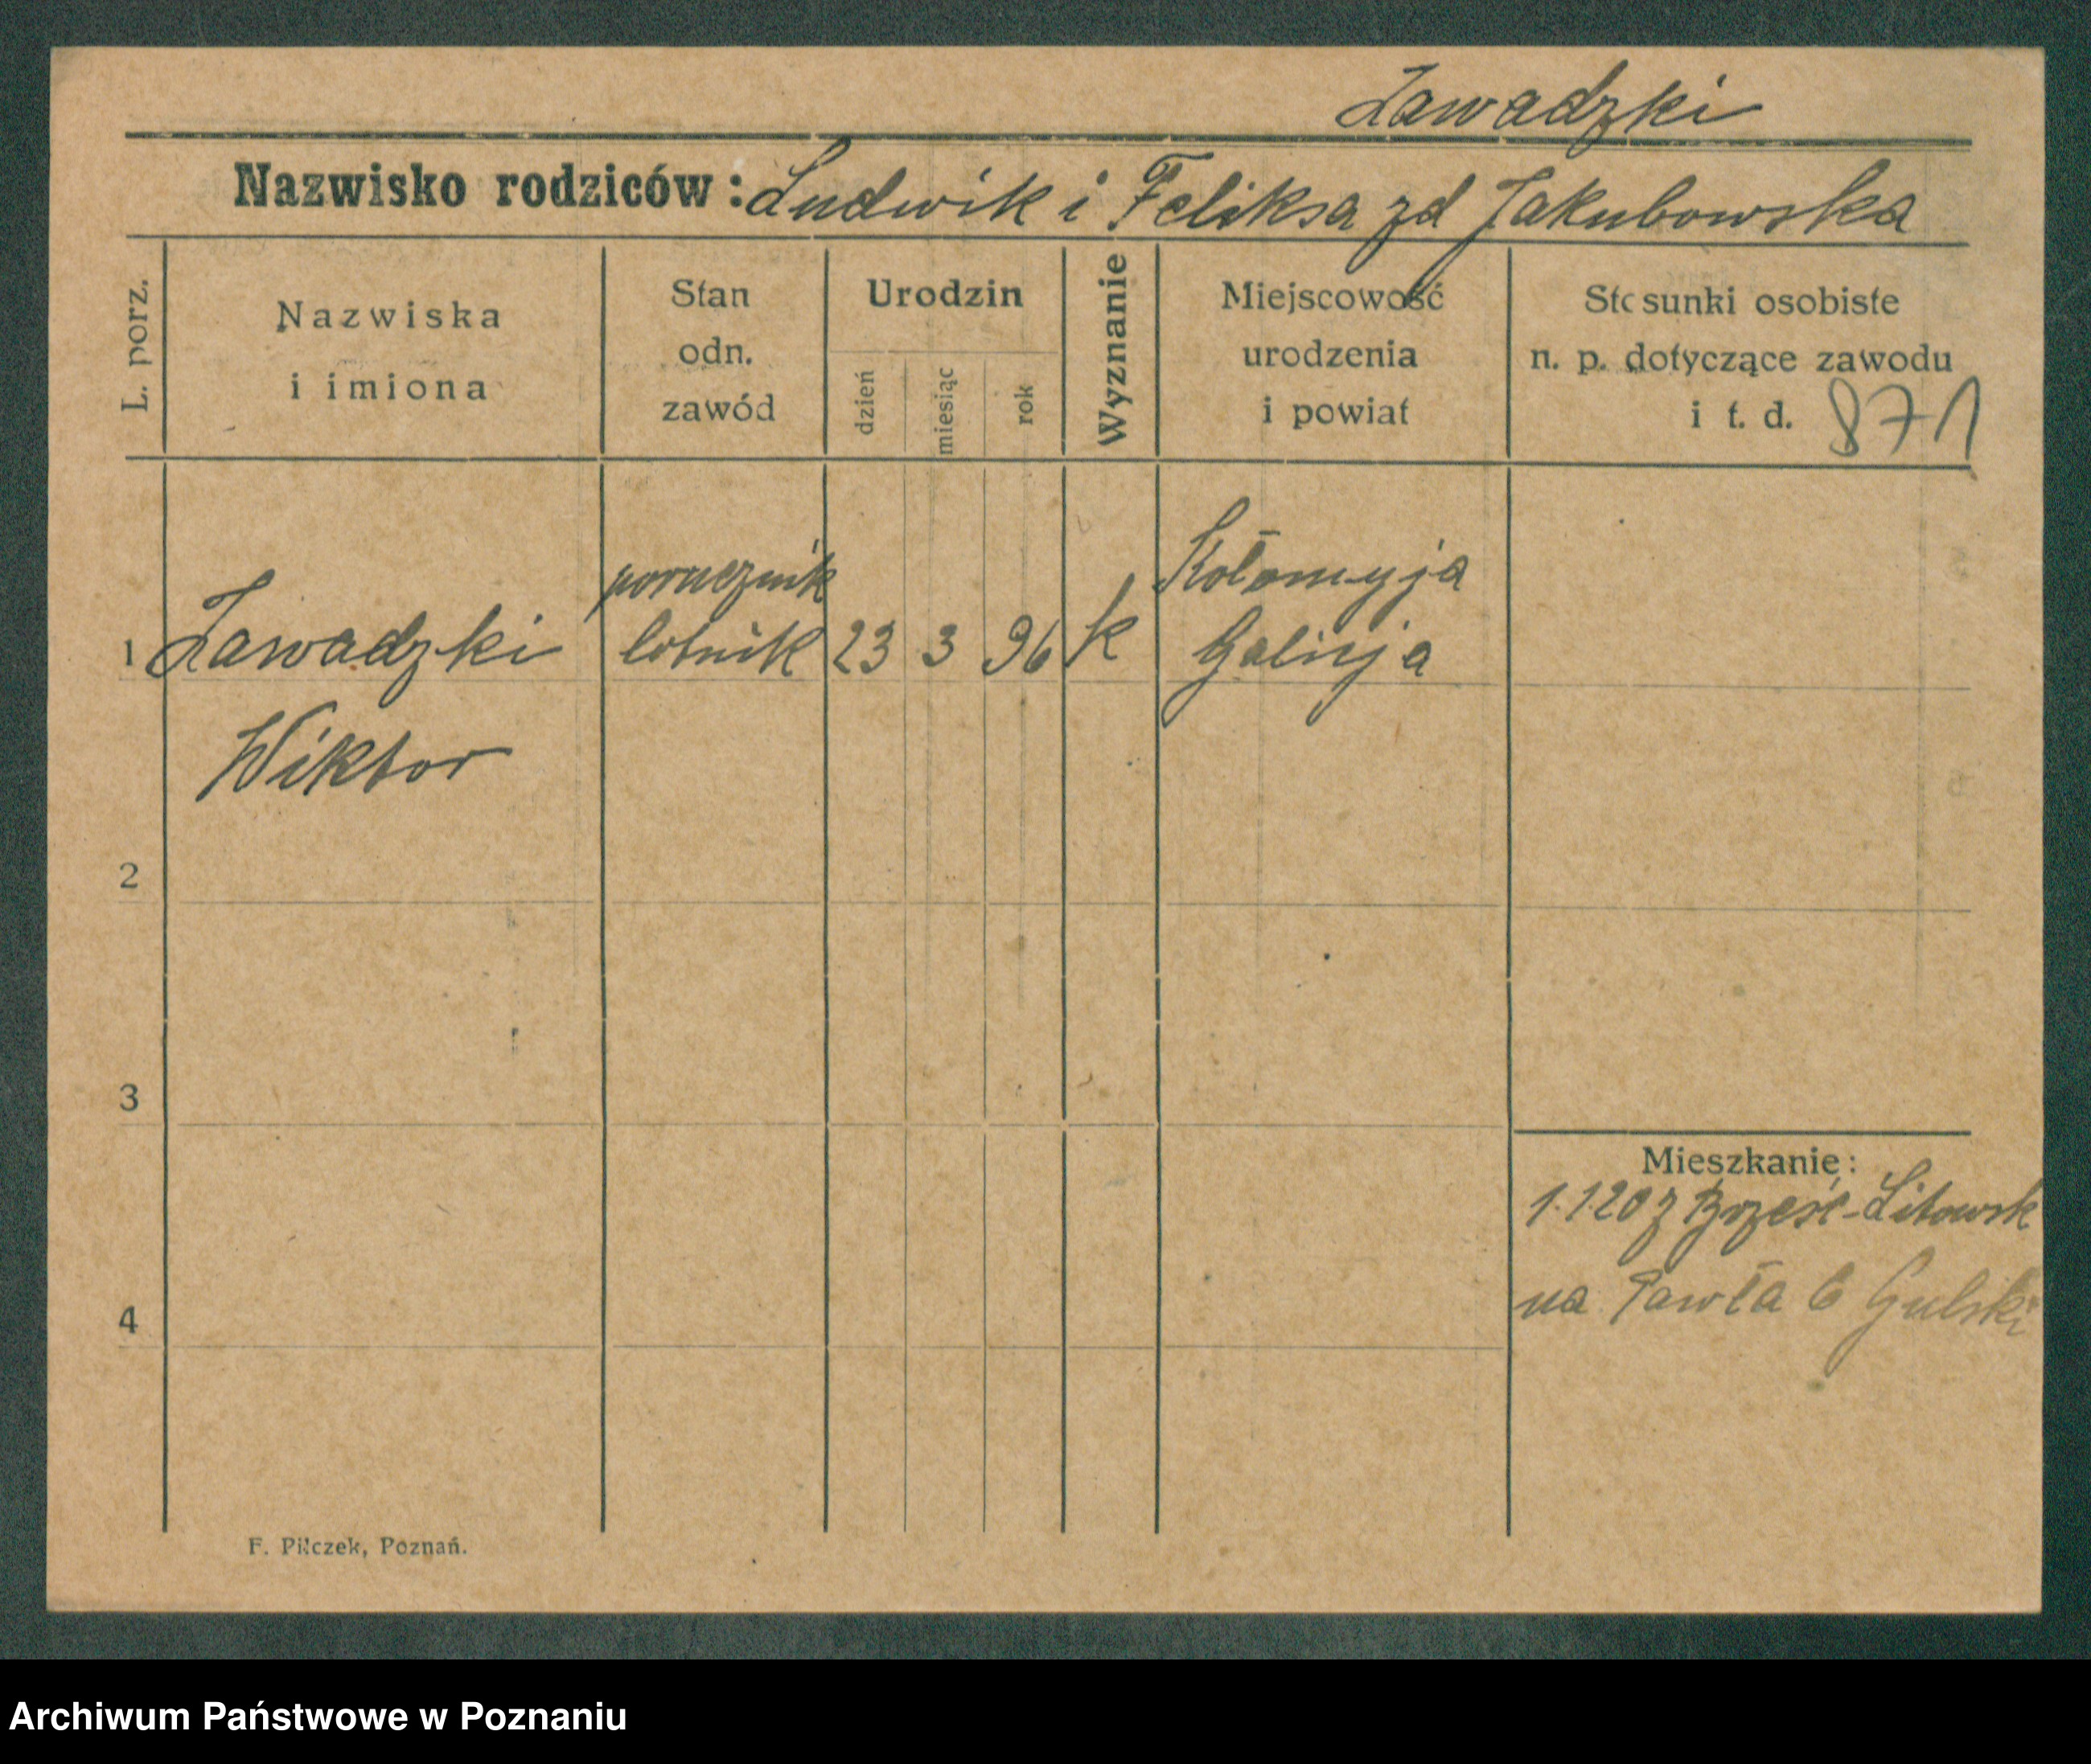 Zawadzki
Nazwisko rodziców: Ludwik i Feliksa zd Jakubowska
L. porz.
Nazwiska
i imiona
Stan
odn.
zawód
Urodzin
dzień
miesiąc
rok
Wyznanie
Miejscowość
urodzenia
i powiat
Stosunki osobiste
n. p. dotyczące zawodu
i t. d. 871
porucznik
Kołomyja
1 Zawadzki lotnik 23 3 96 k Galicja
Wiktor
2
3
Mieszkanie:
1.1.20 z Brześć-Litowsk
na Pawła 6 Gulski
4
F. Pilczek, Poznań.
Archiwum Państwowe w Poznaniu